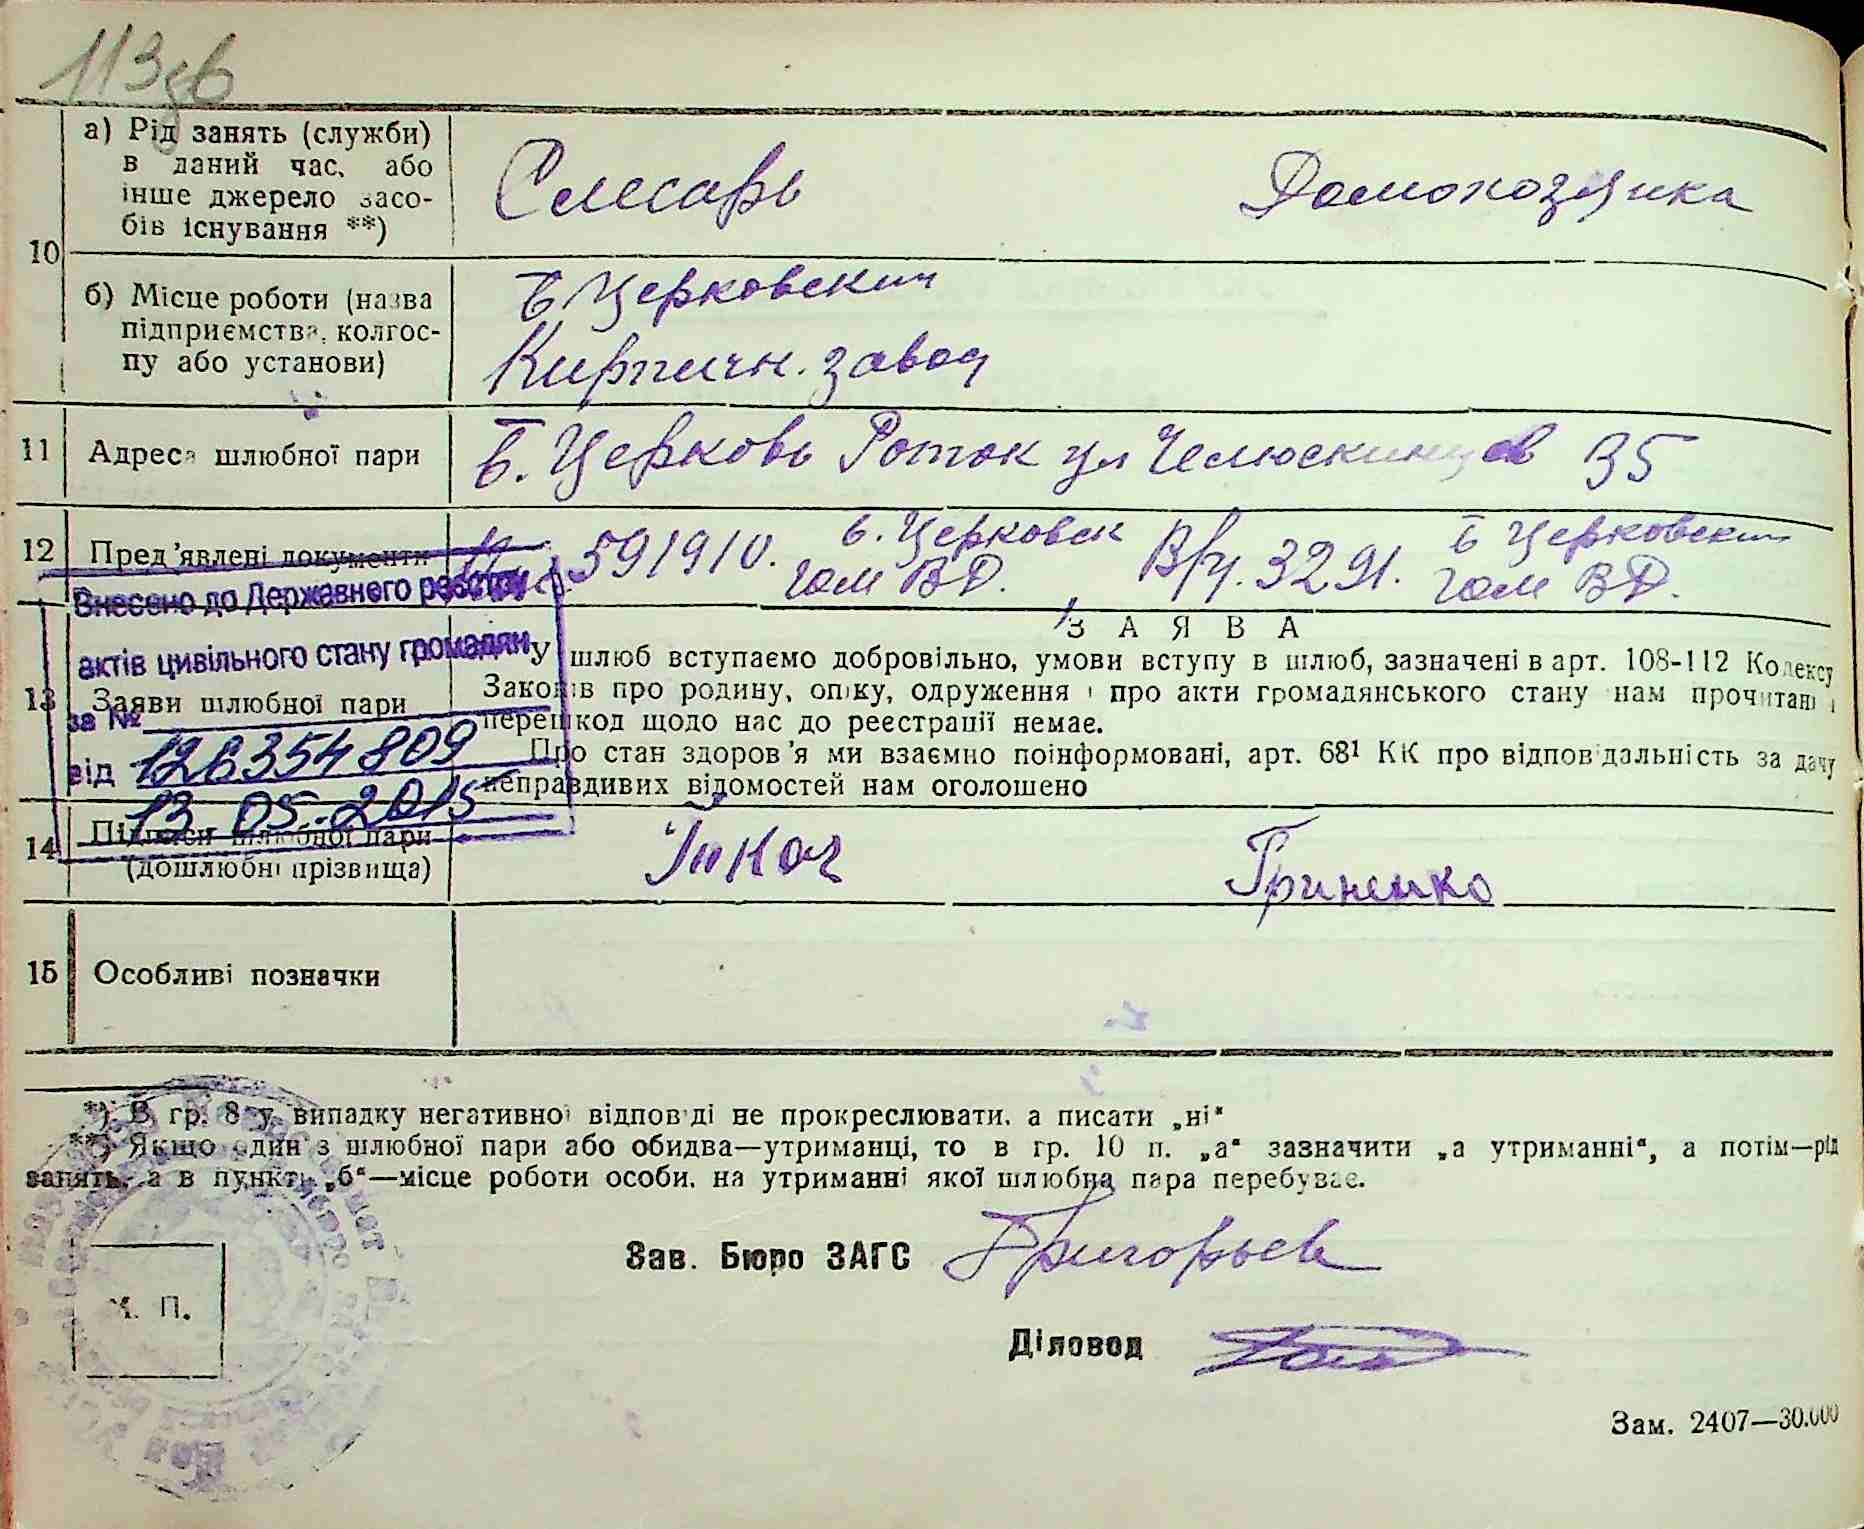 113зв
10
а) Рід занять (служби)
в даний час, або
інше джерело засо-
бів існування **)
Слесарь
Домохозяйка
б) Місце роботи (назва
підприємства, колгос-
пу або установи)
Б Церковский
Кирпичн. завод
11
Адреса шлюбної пари
Б. Церковь Роток ул Челюскинцев 35
12
Пред'явлені документи
591910. Б. Церковск
гом ВД.
В/ч. 3291. Б Церковским
гом ВД.
Внесено до Державного реєстру
актів цивільного стану громадян
за №
126354809
від
13.05.2015
13
Заяви шлюбної пари
ЗАЯВА
У шлюб вступаємо добровільно, умови вступу в шлюб, зазначені в арт. 108-112 Кодексу
Законів про родину, опіку, одруження і про акти громадянського стану нам прочитані і
перешкод щодо нас до реєстрації немає.
Про стан здоров'я ми взаємно поінформовані, арт. 68¹ КК про відповідальність за дачу
неправдивих відомостей нам оголошено
14
Підписи шлюбної пари
(дошлюбні прізвища)
Гриненко
15
Особливі позначки
*) В гр. 8 у випадку негативної відповіді не прокреслювати, а писати „ні"
**) Якщо один з шлюбної пари або обидва—утриманці, то в гр. 10 п. „а" зазначити „а утриманні", а потім—рід
занять, а в пункті „б"—місце роботи особи, на утриманні якої шлюбна пара перебуває.
Зав. Бюро ЗАГС Григорьев
М. П.
Діловод
Зам. 2407—30.000